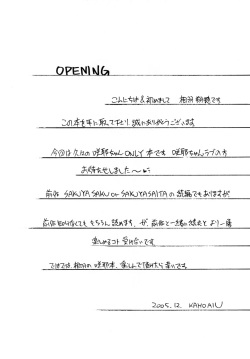 OPENING
こんにちは&初めまして 相羽 翔穂です
この本を手に取って下さり、誠にありがとうございます
今回は久々の 咲耶ちゃん ONLY 本です 咲耶ちゃんラブの方
お待たせしました〜
前作 SAKUYA SAKU or SAKUYA SAITA の続編でもありますが
前作を知らなくても もちろん読めます、が、前作と一緒に読むと より一層
楽しめるコト 受け合いです
ではでは、相羽の 咲耶本、楽しんで頂けたら幸いです
2005. 12. KAHO AIU